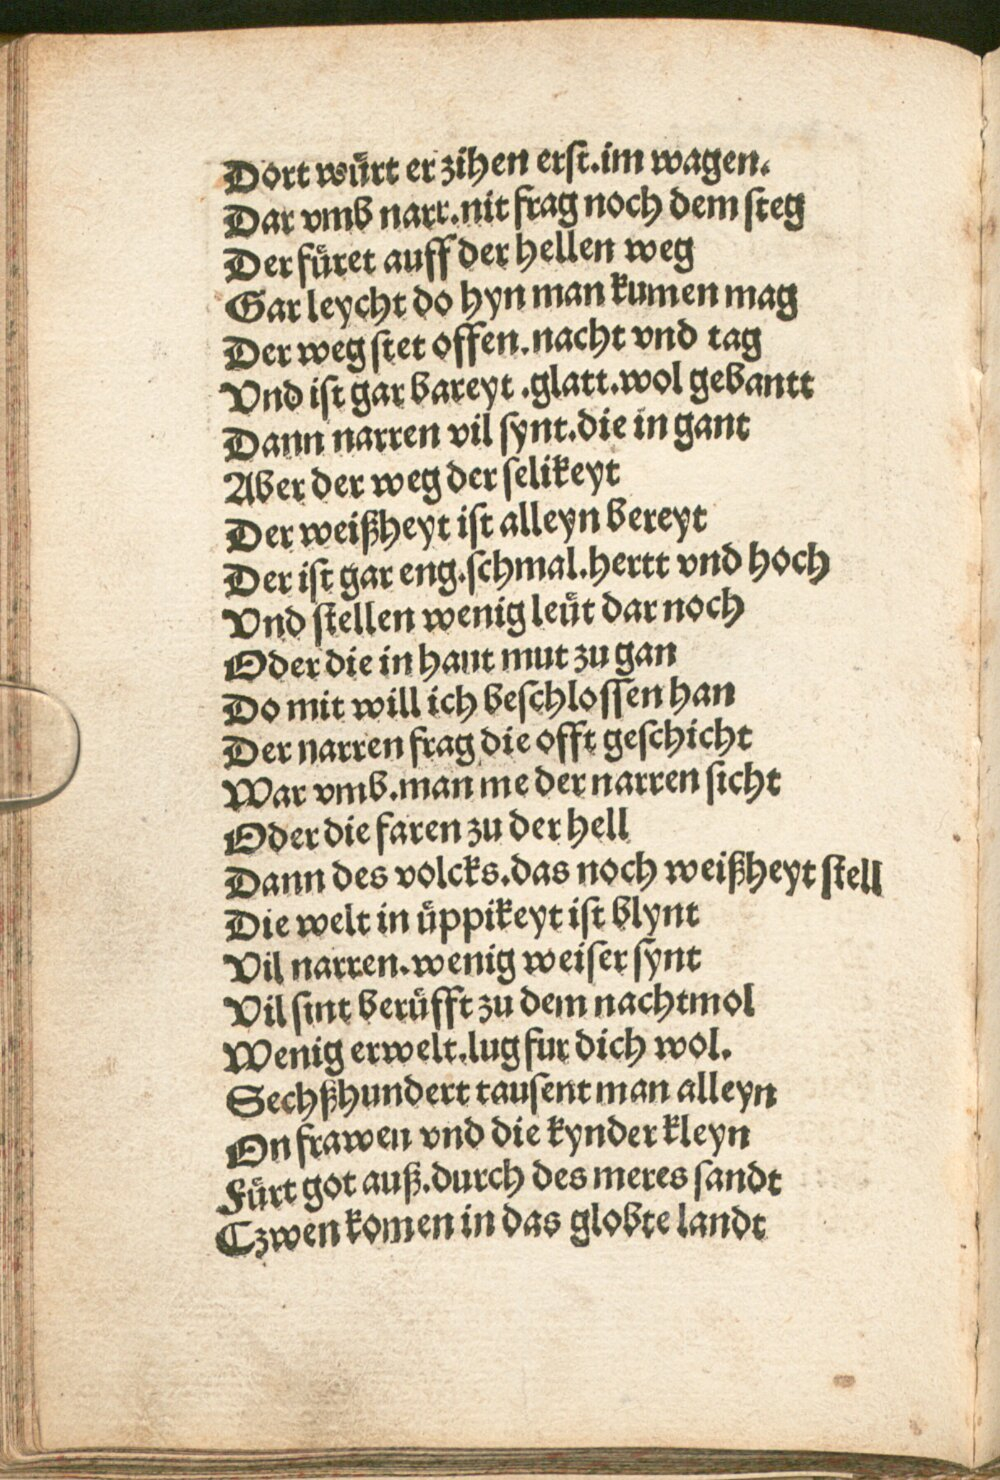 Dort wuͤrt er zihen erst.im wagen.
Dar vmb narr.nit frag noch dem steg
Der fuͤret auff der hellen weg
Gar leycht do hyn man kumen mag
Der weg stet offen.nacht vnd tag
Vnd ist gar bareyt .glatt.wol gebantt
Dann narren vil synt.die in gant
Aber der weg der selikeyt
Der weißheyt ist alleyn bereyt
Der ist gar eng.schmal.hertt vnd hoch
Vnd stellen wenig leuͤt dar noch
Oder die in hant mut zu gan
Do mit will ich beschlossen han
Der narren frag die offt geschicht
War vmb.man me der narren sicht
Oder die faren zu der hell
Dann des volcks.das noch weißheyt stell
Die welt in uͤppikeyt ist blynt
Vil narren.wenig weiser synt
Vil sint beruͤfft zu dem nachtmol
Wenig erwelt.lug fur dich wol.
Sechßhundert tausent man alleyn
On frawen vnd die kynder kleyn
Fuͤrt got auß.durch des meres sandt
Czwen komen in das globte landt